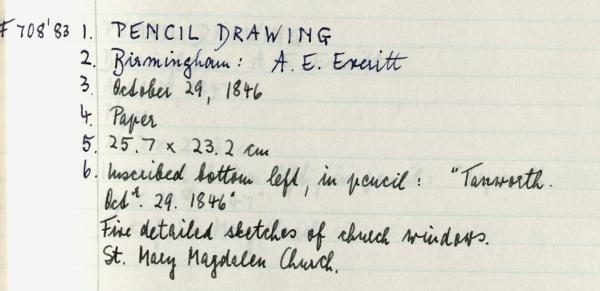 F 708'83 1. PENCIL DRAWING
2. Birmingham: A. E. Everitt
3. October 29, 1846
4. Paper
5. 25.7 x 23.2 cm
6. Inscribed bottom left, in pencil: "Tanworth.
Octr. 29. 1846"
Five detailed sketches of church windows.
St. Mary Magdalen Church.